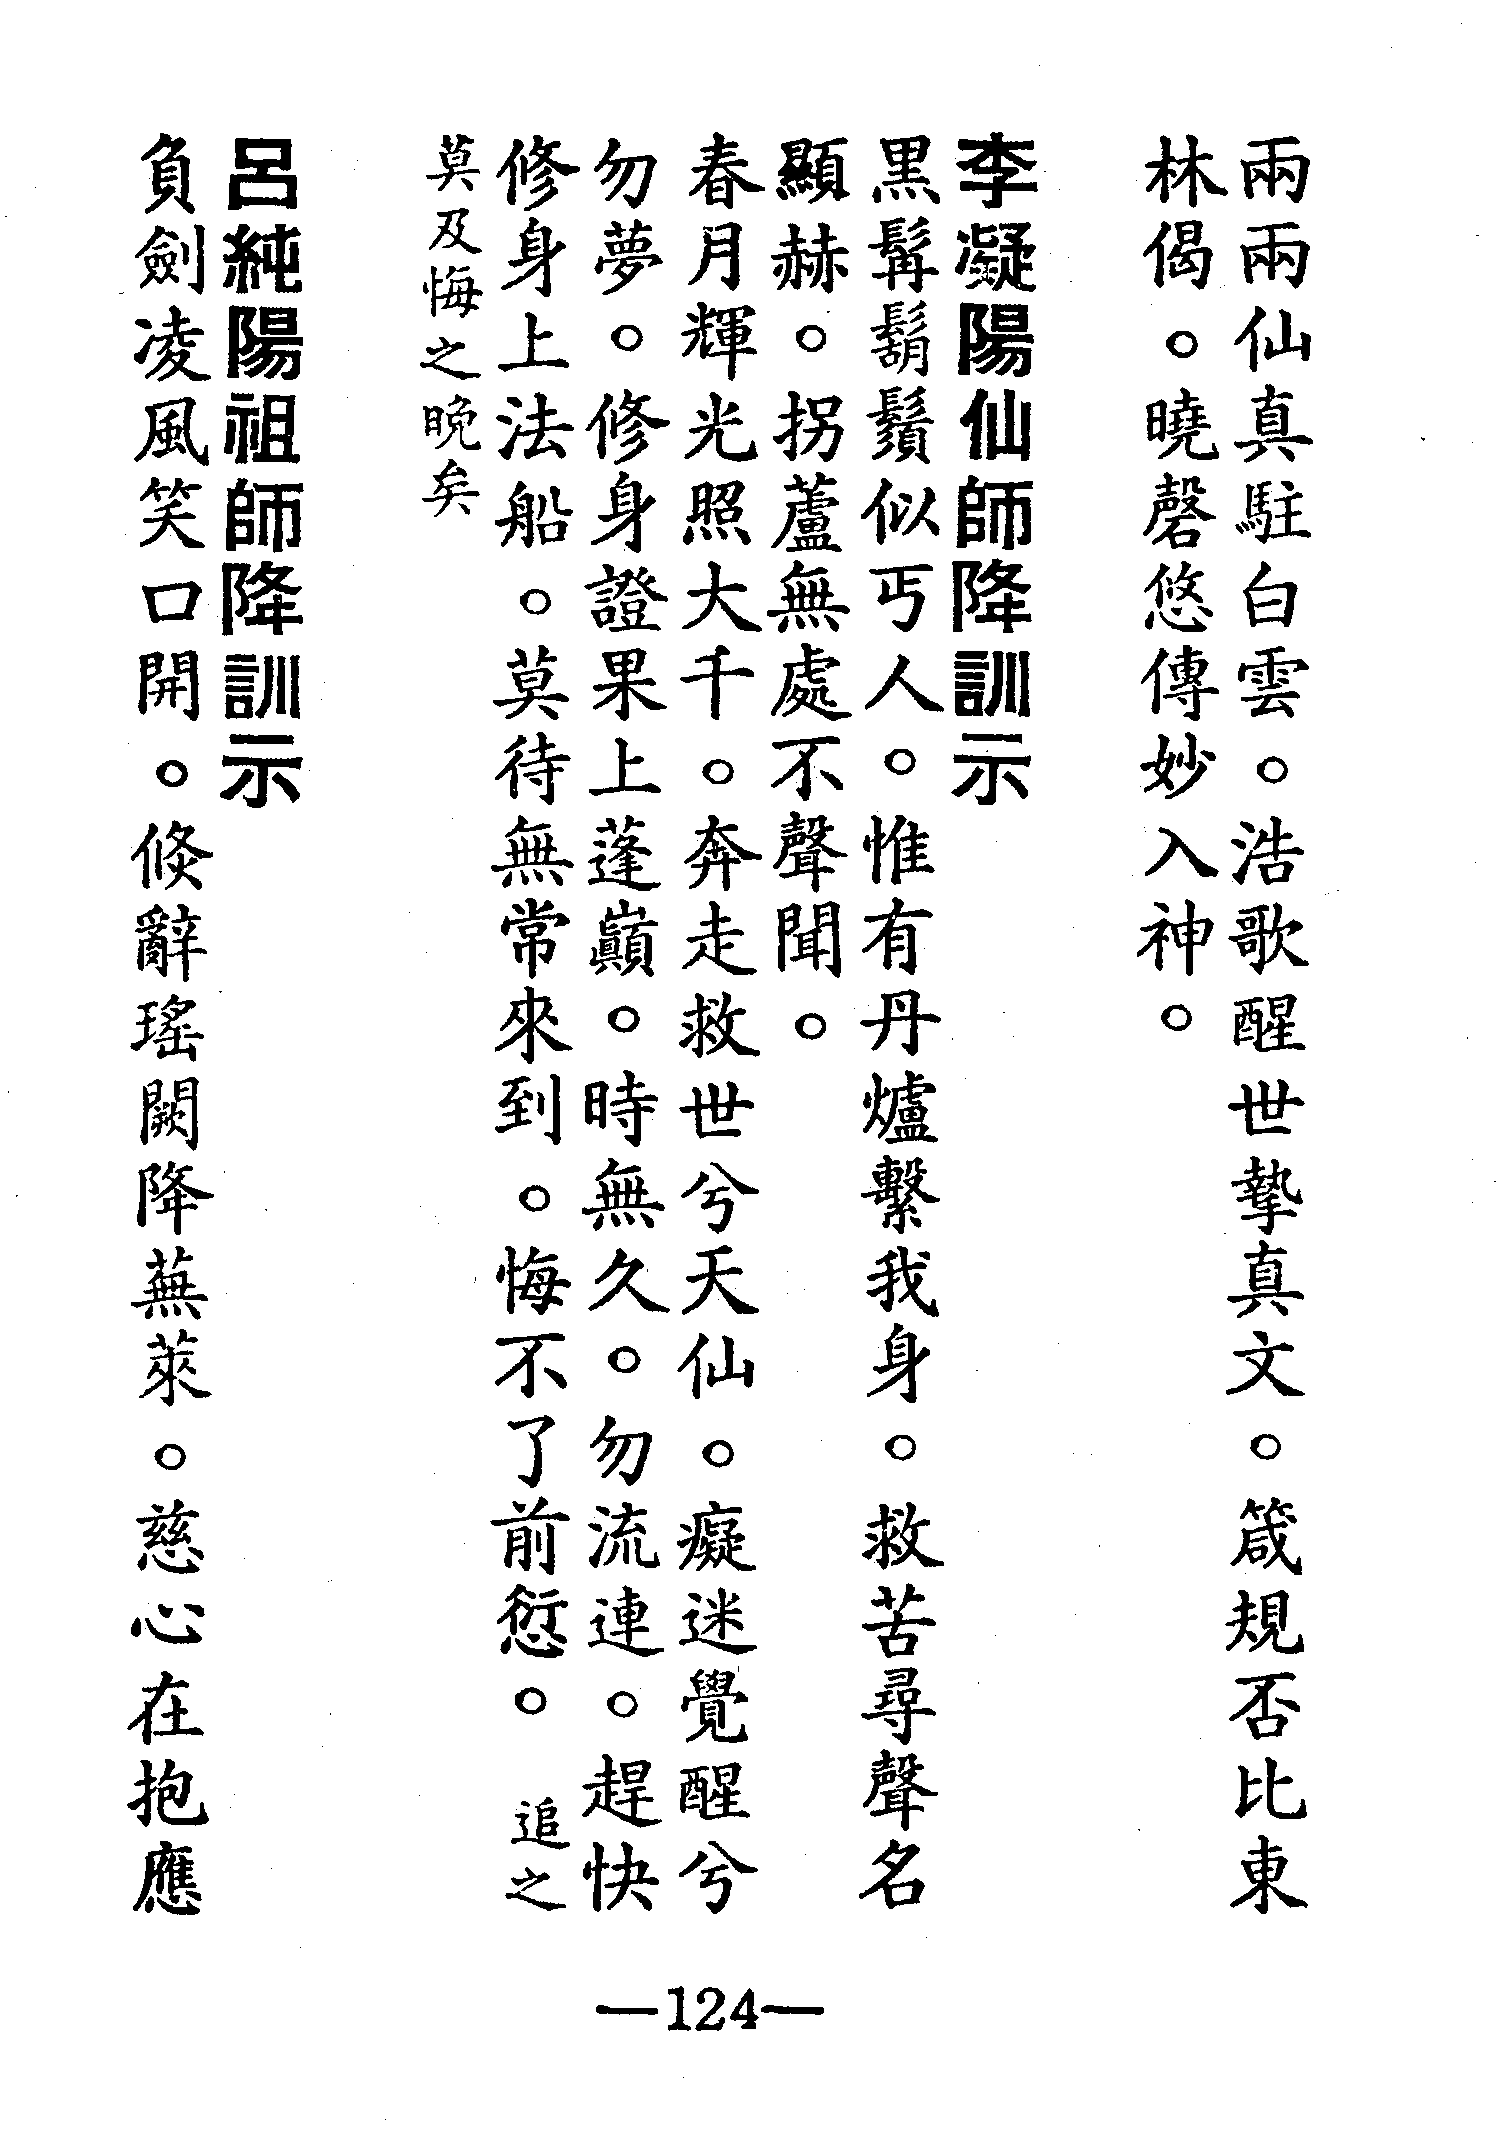 兩兩仙真駐白雲。浩歌醒世摯真文。箴規否比東
林偈。曉磬悠傳妙入神。
李凝陽仙師降訓示
黑髯鬍鬚似丐人。惟有丹爐繫我身。救苦尋聲名
顯赫。拐蘆無處不聲聞。
春月輝光照大千。奔走救世兮天仙。癡迷覺醒兮
勿夢。修身證果上蓬巔。時無久。勿流連。趕快
修身上法船。莫待無常來到。悔不了前愆。追之
莫及悔之晚矣
呂純陽祖師降訓示
負劍凌風笑口開。倐辭瑤闕降蕪萊。慈心在抱應
—124—